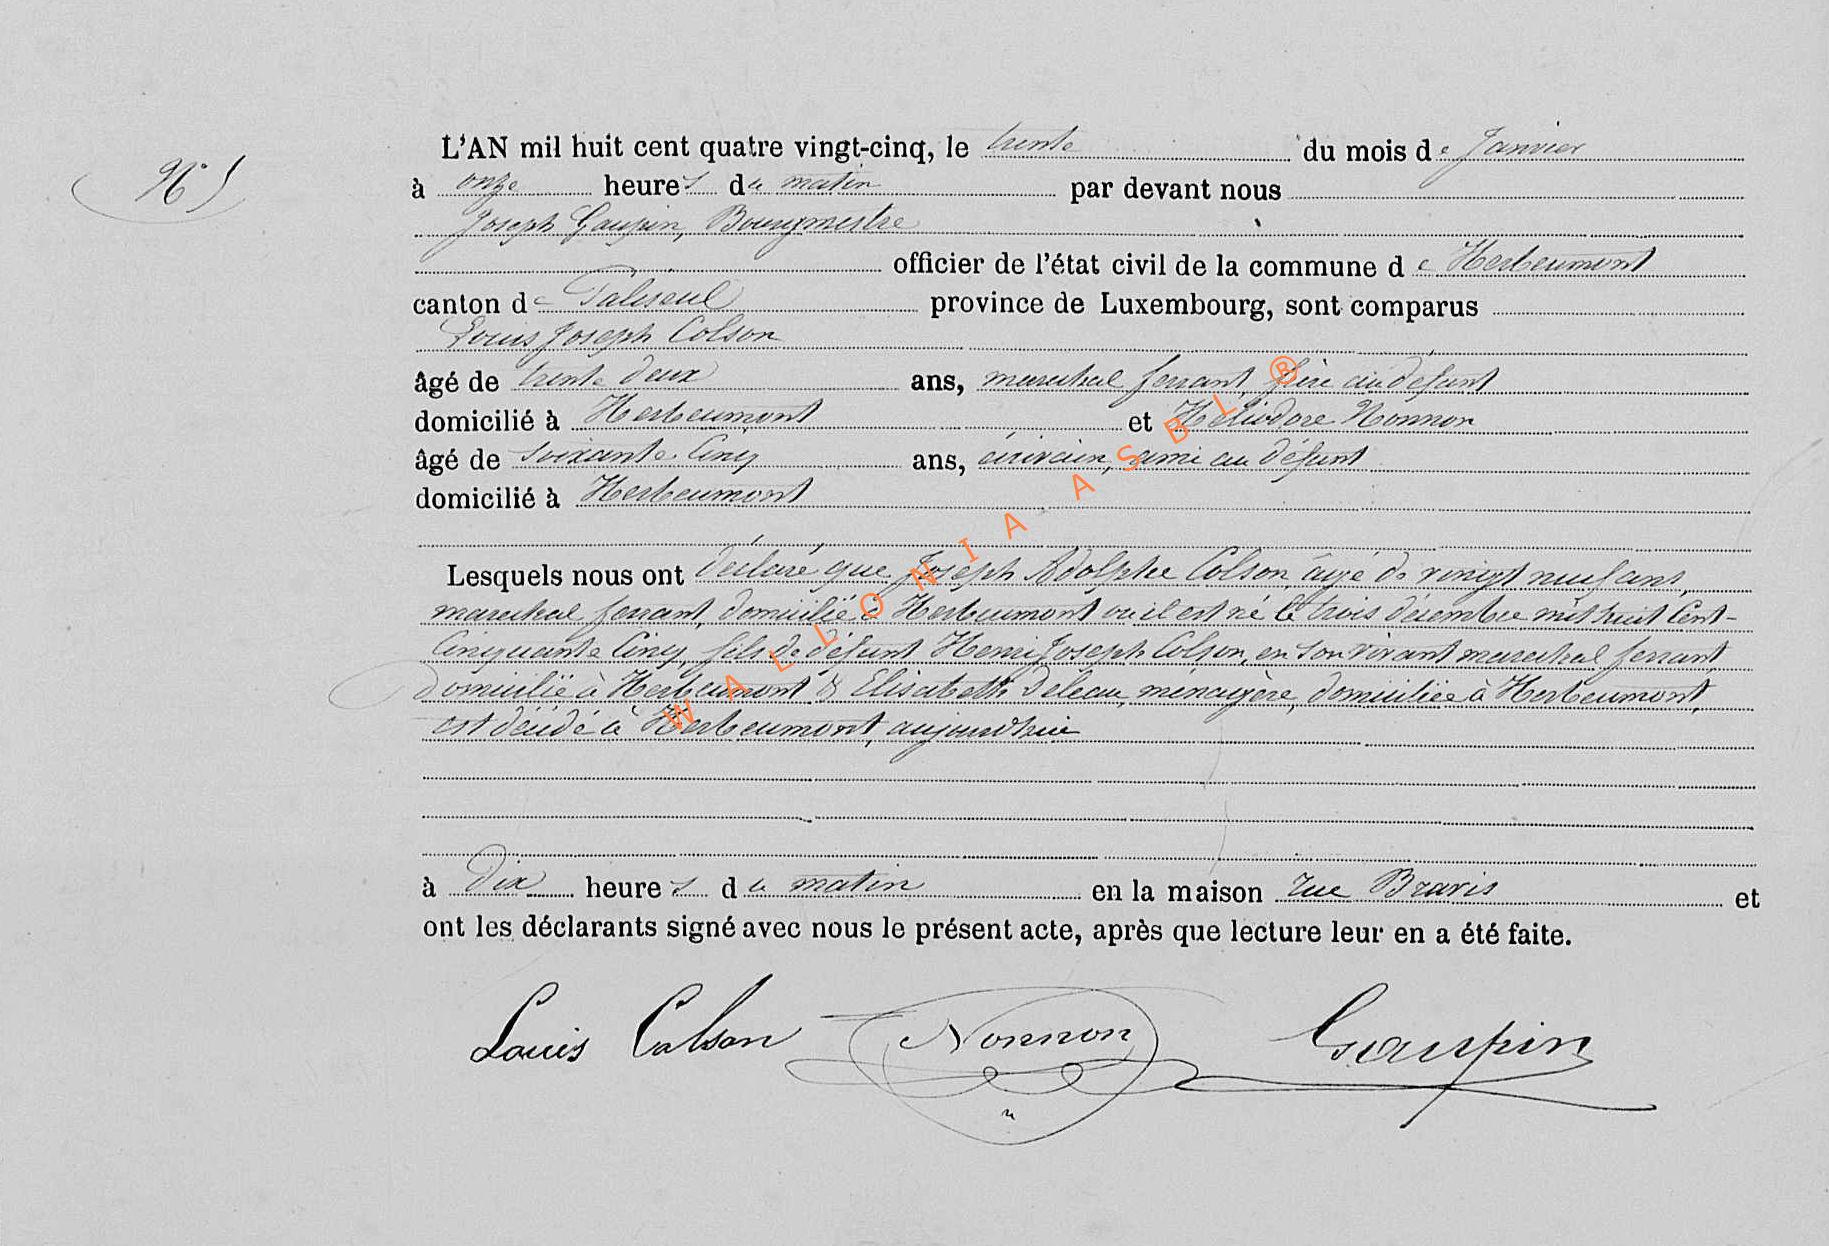 N° 5
L'AN mil huit cent quatre vingt-cinq, le trente du mois de Janvier
à onze heures du matin par devant nous
Joseph Gaupin, Bourgmestre
officier de l'état civil de la commune de Herbeumont
canton de Paliseul province de Luxembourg, sont comparus
Louis Joseph Colson
âgé de trente deux ans, marechal ferrant, frère au défunt
domicilié à Herbeumont et Héliodore Nonnon
âgé de soixante Cinq ans, écrivain, ami au défunt
domicilié à Herbeumont
Lesquels nous ont déclaré que Joseph Adolphe Colson, âgé de vingt neuf ans,
marechal ferrant, domicilié à Herbeumont où il est né le trois décembre mil huit Cent-
Cinquante Cinq, fils de défunt Henri Joseph Colson, en son vivant marechal ferrant
domicilié à Herbeumont & Elisabeth Deleau, ménagère, domiciliée à Herbeumont,
est décédé à Herbeumont, aujourd'hui
à dix heures du matin en la maison rue Bravis et
ont les déclarants signé avec nous le présent acte, après que lecture leur en a été faite.
Louis Colson Nonnon Gaupin
WALLONIA ASBL ®